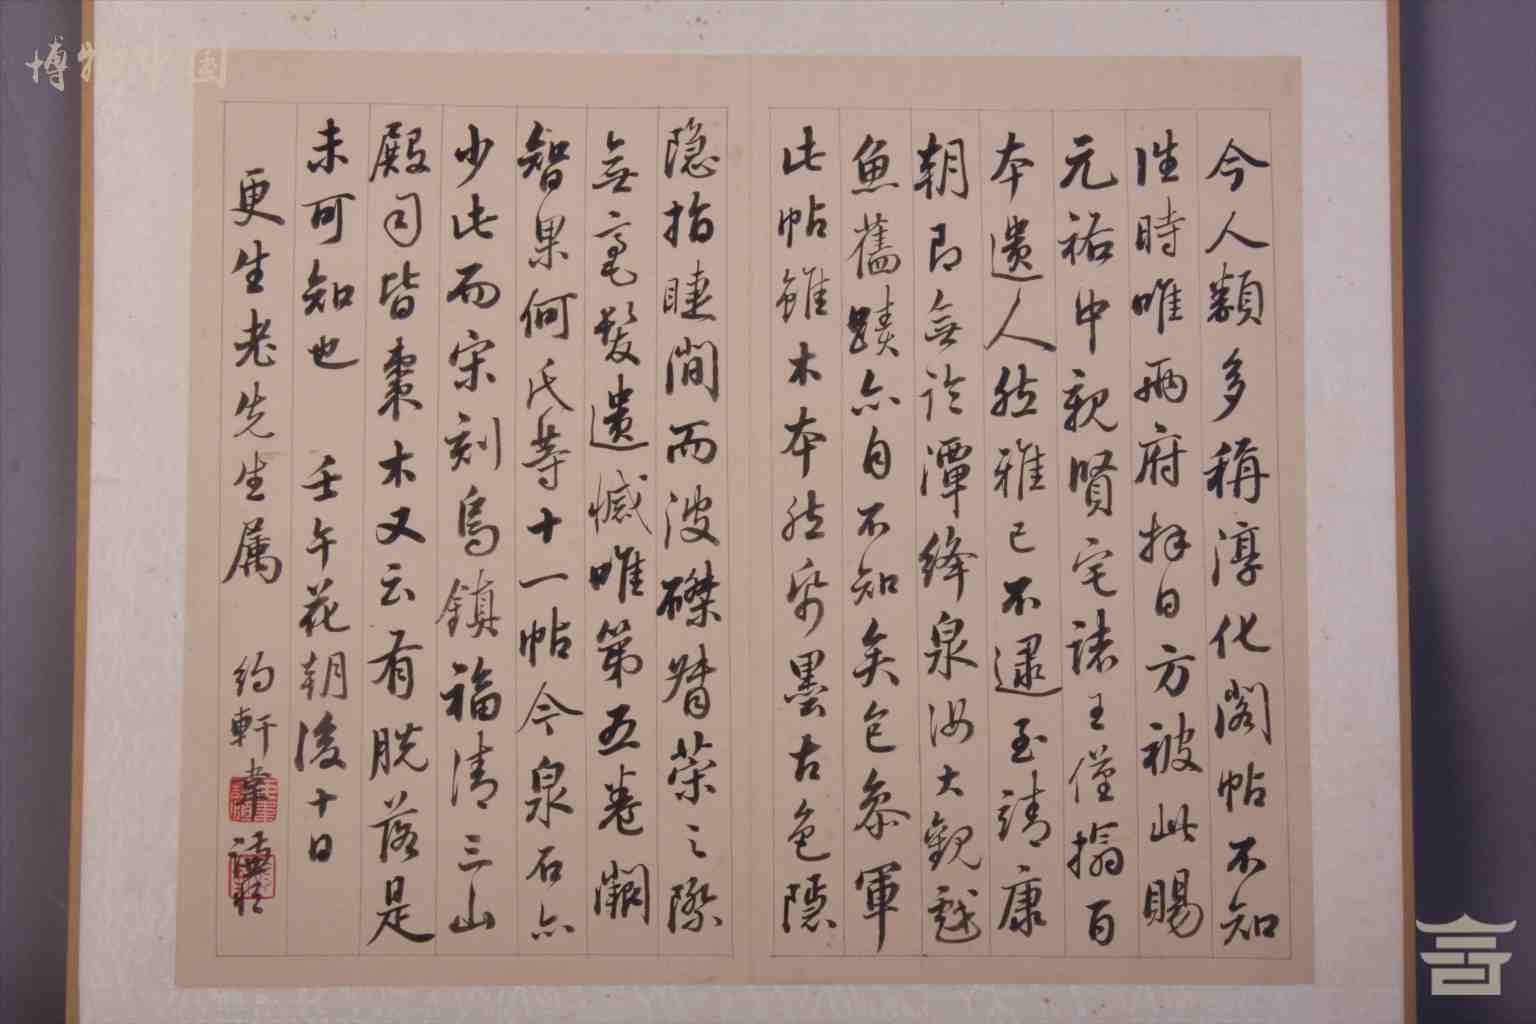 博物中國
今人類多稱淳化閣帖不知
往時唯兩府拜日方被此賜
元祐中親賢宅諸王僅搨百
本遺人然雅已不逮至靖康
朝即無論潭絳泉汝大觀戲
魚舊蹟亦自不知矣包參軍
此帖雖木本然紙墨古色隱
隐指睫間而波磔榮之際
無毫髮遺憾唯第五卷闕
智果何氏等十一帖今泉石亦
少此而宋刻烏鎮福清三山
殿司皆棗木又云有脱落是
未可知也 壬午花朝後十日
更生老先生属 約軒韋